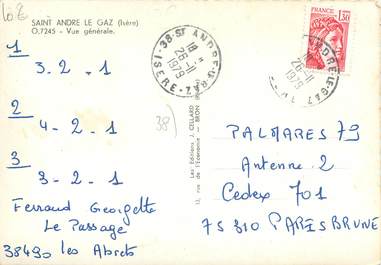 10 €
SAINT ANDRE LE GAZ (Isère)
O.7245 - Vue générale.
38-ST ANDRE-LE-GAZ
18 H
26-11
1979
ISERE
FRANCE
1,30
ANDRE-LE-GAZ
26-11
1979
38)
Les Editions J. CELLARD
BRON
1
3 - 2 - 1
2
4 - 2 - 1
3
3 - 2 - 1
Ferraud Georgette
Le Passage
38490 les Abrets
PALMARES 79
Antenne 2
Cedex 701
75310 PARIS BRUNE